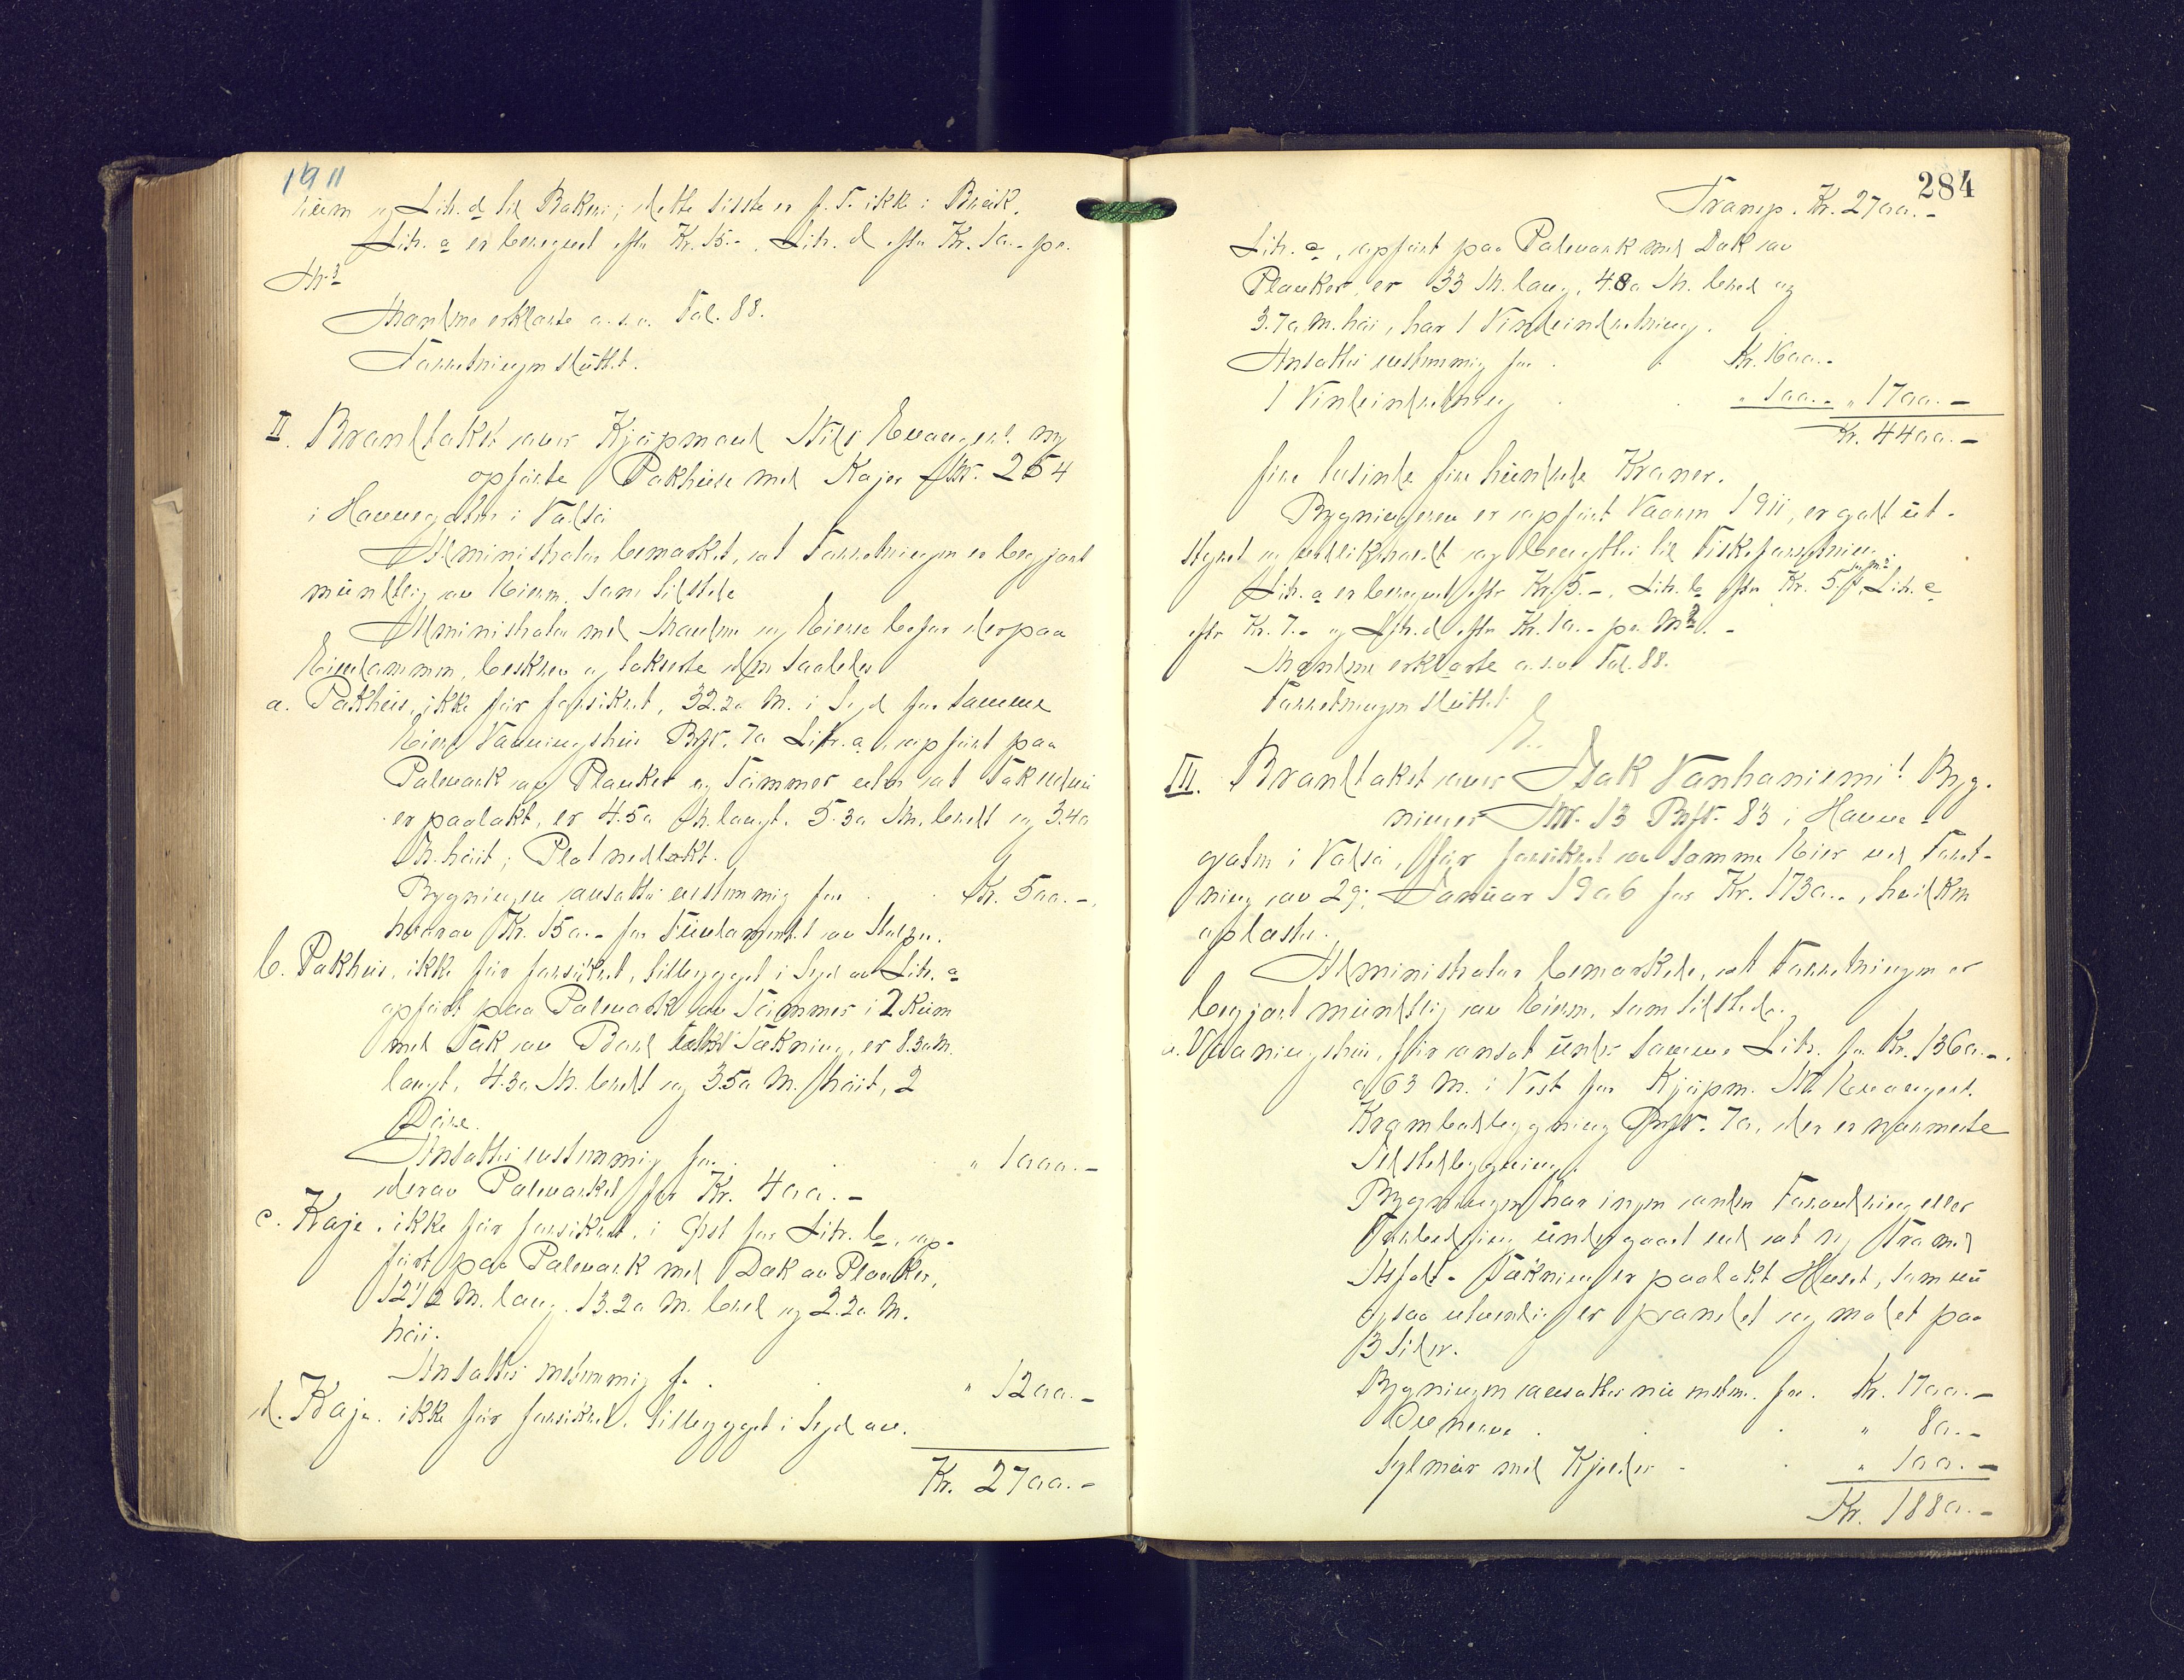 1911
rum og Litr. d til Bakeri; dette sidste er f. T. ikke i Bruk.
Litr. a er beregnet efter Kr. 15.-, Litr. d efter Kr. 10.- pr.
M.²
Mændene erklærte o.s.v. Fol. 88.
Forretningen sluttet.
II. Brandtakst over Kjøpmand Nils Evangers ny
opførte Pakhuse med Kajer Mr. 254
i Havnegaten i Vadsø
Administrator bemerket, at Forretningen er begjært
mundtlig av Eieren, som tilstede
Administrator med Mændene og Eieren befor derpaa
Eiendommen, beskrev og takserte den saaledes
a. Pakhus, ikke før forsikret, 32.20 M. i Syd for samme
Eiers Vaaningshus Br№. 70 Litr. a, opført paa
Palværk av Planker og Tømmer uten at Tak endnu
er paalakt, er 4.50 M. langt, 5.30 M. bredt og 3.40
M. høit; Plat nedlakt.
Bygningen ansattes enstemmig for Kr. 500.-
hvorav Kr. 150.- for Fundamentet av Stolper.
b. Pakhus, ikke før forsikret, tilbygget i Syd av Litr. a
opført paa Palværk av Tømmer i 2 Rum
med Tak av Bord Tækning, er 8.30 M.
langt, 4.30 M. bredt og 3.50 M. høit, 2
Døre.
Ansattes enstemmig for " 1000.-
derav Palværket for Kr. 400.-
c. Kaje, ikke før forsikret, i Øst for Litr. b, op-
ført paa Palværk med Dæk av Planker,
12 1/2 M. lang, 13.20 M. bred og 2.20 M.
høi.
Ansattes enstemmig for " 1200.-
d. Kaje, ikke før forsikret, tilbygget i Syd av
Kr. 2700.-
284
Transp. Kr. 2700.-
Litr. c, opført paa Palværk med Dæk av
Planker, er 33 M. lang, 4.80 M. bred og
3.70 M. høi, har 1 Vindeindretning.
Ansattes enstemmig for Kr. 1600.-
1 Vindeindretning " 100.- " 1700.-
Kr. 4400.-
fire tusinde fire hundrede Kroner.
Bygningerne er opført Vaaren 1911, er godt ut-
styret og vedlikeholdt og benyttes til Fiskeforretning.
Litr. a er beregnet efter Kr. 5.-, Litr. b efter Kr. 5. pr. M.², Litr. c
efter Kr. 7.- og Litr. d efter Kr. 10.- pr. M.².-
Mændene erklærte o.s.v. Fol. 88.
Forretningen sluttet
III. Brandtakst over Isak Vanhaniemi's Byg-
ninger Mr. 13 Br№. 83 i Havne-
gaten i Vadsø, før forsikret av samme Eier ved Forret-
ning av 29. Januar 1906 for Kr. 1730.-, hvilken
oplæstes.
Administrator bemerkede, at Forretningen er
begjært mundtlig av Eieren, som tilstede.
a. Vaaningshus, før ansat under samme Litr. for Kr. 1360.-,
63 M. i Vest for Kjøpm. Nils Evangers
Krambodbygning Br№. 70, der er nærmeste
Ildstedbygning.
Bygningen har ingen anden Forandring eller
Forbedring undergaaet end at ny Træ med
Asfalt-Tækning er paalakt Huset, som nu
ogsaa utvendig er panelet og malet paa
3 Sider.
Bygningen ansattes nu enstem. for Kr. 1700.-
Ovnene " 80.-
Ildmur med Kjelder " 100.-
Kr. 1880.-